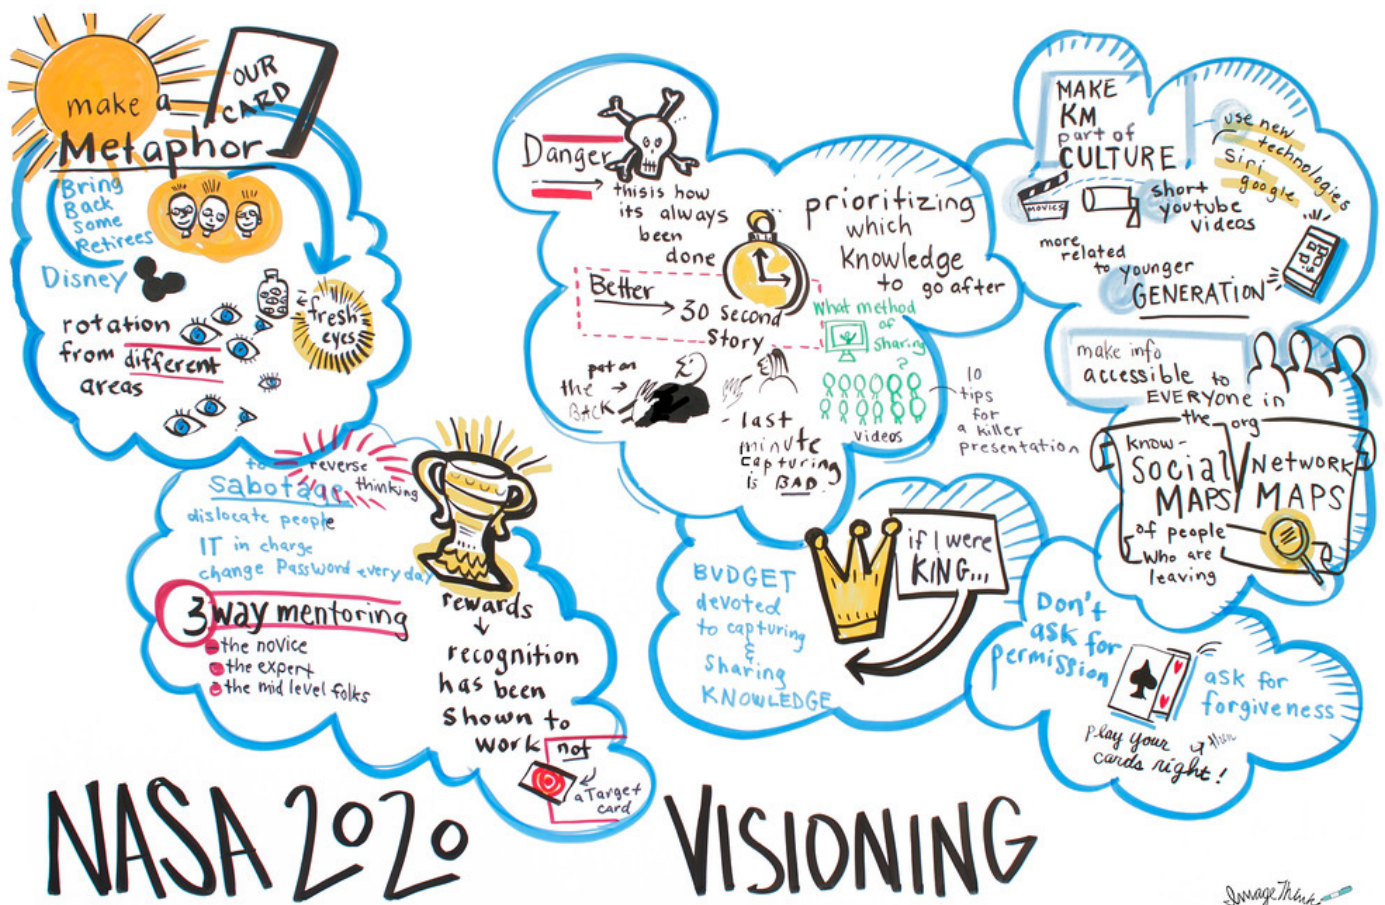 OUR
CARD
make a
Metaphor
Bring
Back
some
Retirees
Disney
fresh
eyes
rotation
from different
areas
to
Sabotage
reverse
thinking
dislocate people
IT in charge
change Password every day
3 way mentoring
the novice
the expert
the mid level folks
rewards
recognition
has been
shown to
work not
a Target
card
Danger
this is how
its always
been
done
Better
30 second
Story
pat on
the
BACK
last
minute
capturing
is BAD.
prioritizing
which
knowledge
to go after
What method
of
sharing
?
videos
10
tips
for
a killer
presentation
if I were
KING...
BUDGET
devoted
to capturing
&
sharing
KNOWLEDGE
MAKE
KM
part of
CULTURE
use new
technologies
Siri
google
MOVIES
short
youtube
videos
more
related
to younger
GENERATION
make info
accessible to
EVERYone in
the org
know-
Social/Network
MAPS MAPS
of people
who are
leaving
Don't
ask for
permission
ask for
forgiveness
play your
cards right!
then
NASA 2020 VISIONING
ImageThink